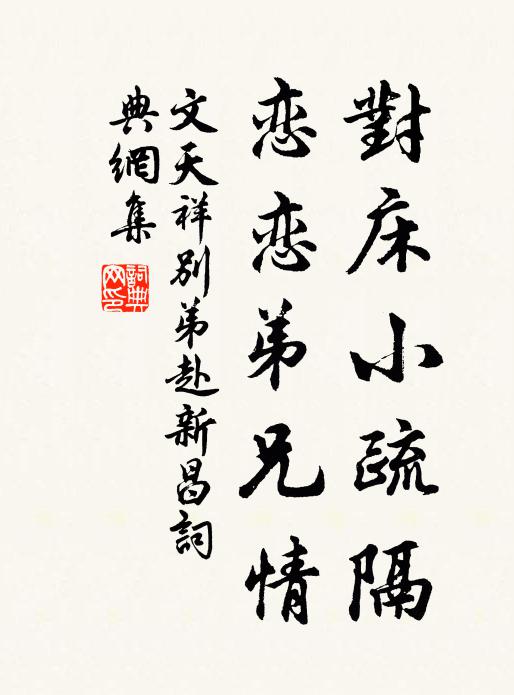 對床小疏隔
恋恋弟兄情
文天祥別弟赴新昌詞
典網集
詞典网印